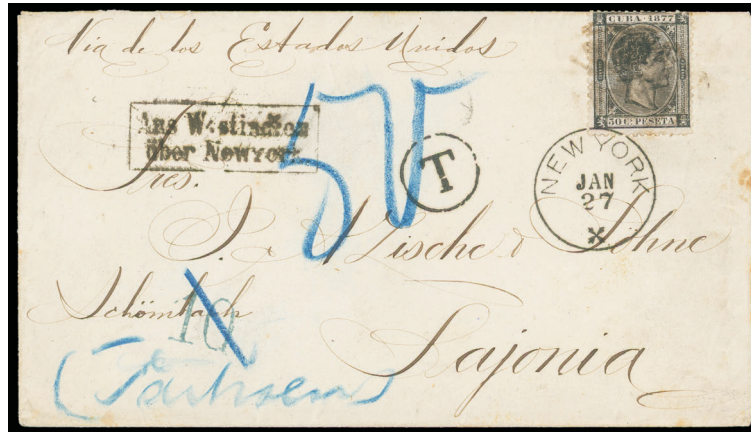 Via de los Estados Unidos
CUBA 1877
50 C. PESETA
Aus Westindien
über Newyork
50
T
NEW YORK
JAN
27
Sres.
J. Wische & Söhne
Schömbach
10
Sajonia
(Sachsen)